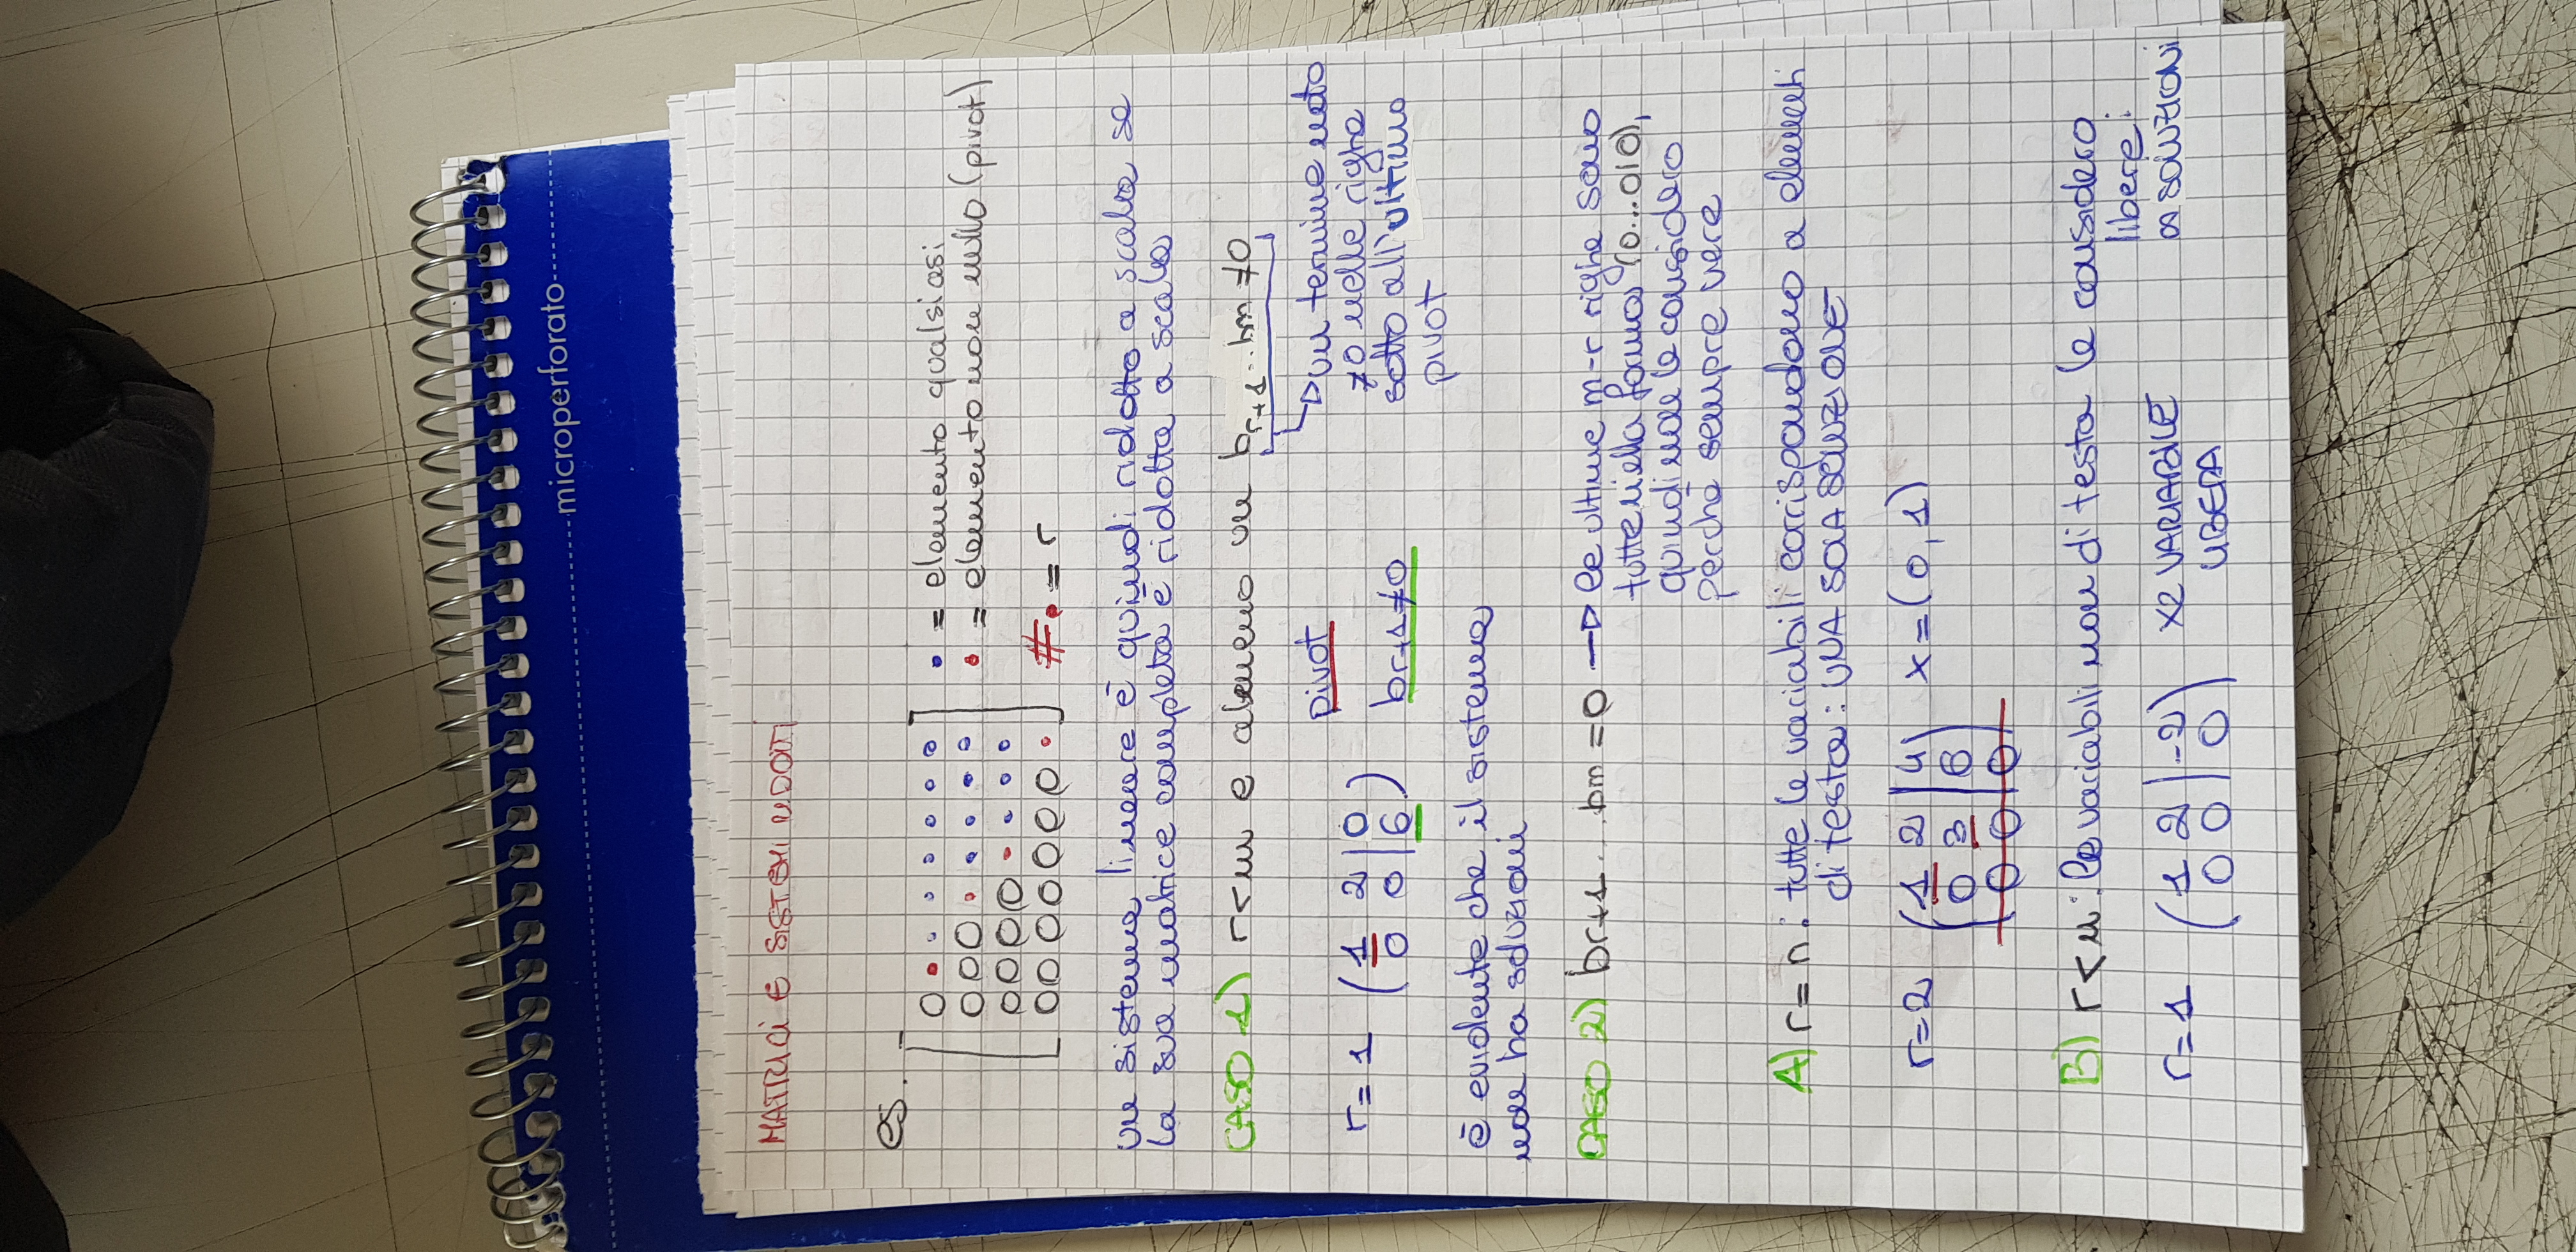 microperforato
MATRICI E SISTEMI RIDOTTI
es.
0 • • • • • • •
0 0 0 • • • • •
0 0 0 0 • • • •
0 0 0 0 0 0 0 •
• = elemento qualsiasi
• = elemento non nullo (pivot)
#• = r
un sistema lineare è quindi ridotto a scala se
la sua matrice completa è ridotta a scala
CASO 1) r<m e almeno un br+1...bm ≠0
un termine noto
≠0 nelle righe
sotto all'ultimo
pivot
pivot
r=1 (1 2 | 0
0 0 | 6)
br+1≠0
è evidente che il sistema
non ha soluzioni
CASO 2) br+1... bm = 0 → le ultime m-r righe sono
tutte nella forma (0...0|0),
quindi non le considero
perché sempre vere
A) r=n: tutte le variabili corrispondono a elementi
di testa: UNA SOLA SOLUZIONE
r=2 (1 2 | 4) x=(0,1)
0 3 | 6
0 0 | 0
B) r<n: le variabili non di testa le considero
libere:
∞ SOLUZIONI
r=1 (1 2 | -2) x2 VARIABILE
0 0 | 0 LIBERA